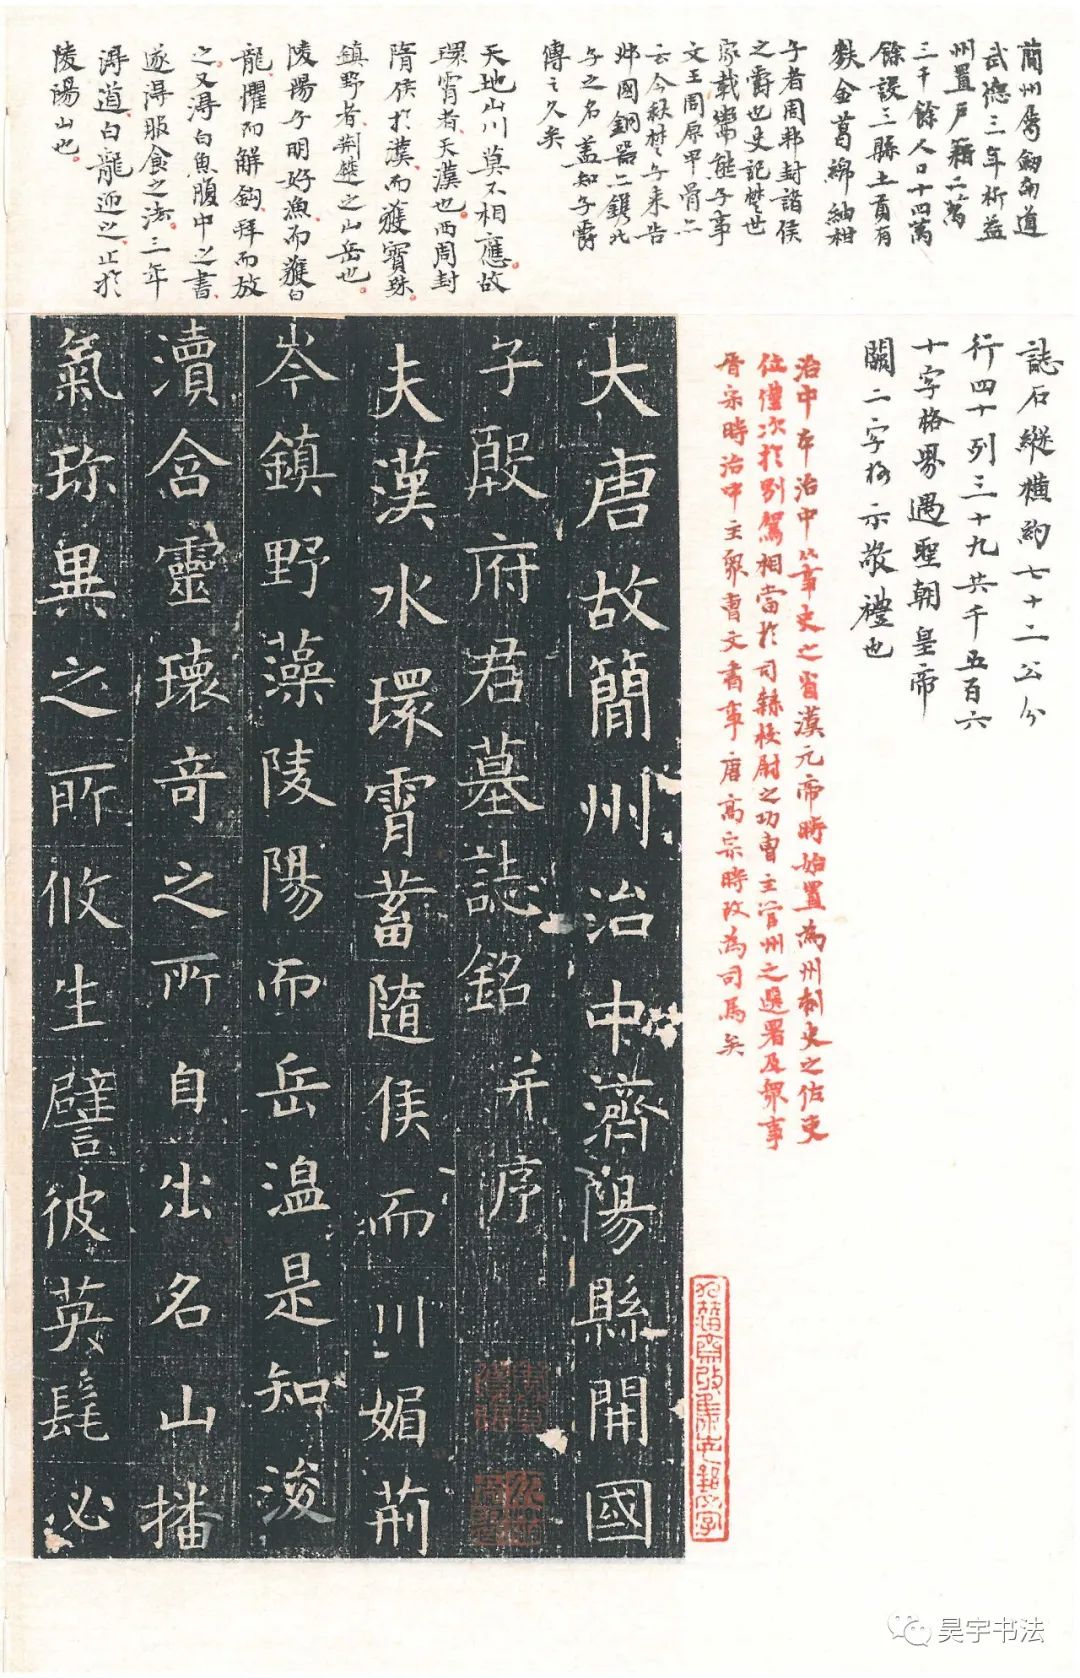 簡州屬劍南道
武德三年析益
州置戶籍二萬
三千餘人口十四萬
餘設三縣土貢有
麩金葛綿紬柑
子者周邦封諸侯
之爵也史記楚世
家載鬻熊子事
文王周原甲骨亦
云今秋楚子來告
邶國銅器亦鐫北
子之名蓋知子爵
傳之久矣
天地山川莫不相應故
環霄者天漢也西周封
隋侯於漢而獲寶珠
鎮野者荊楚之山岳也
陵陽子明好漁而獲白
龍懼而解鈎拜而放
之又得白魚腹中之書
遂得服食之法三年
得道白龍迎之止於
陵陽山也
誌石縱橫約七十二公分
行四十列三十九共千五百六
十字格界遇聖朝皇帝
闕二字格示敬禮也
治中本治中從事史之省漢元帝時始置為州刺史之佐吏
位僅次於別駕相當於司隸校尉之功曹主管州之選署及眾事
晉宋時治中主眾曹文書事唐高宗時改為司馬矣
大唐故簡州治中濟陽縣開國
子殷府君墓誌銘 并序
夫漢水環霄蓄隨侯而川媚荊
岑鎮野藻陵陽而岳溫是知浚
瀆含靈瓌奇之所自出名山播
氣珎異之所攸生譬彼英髦必
昊宇书法